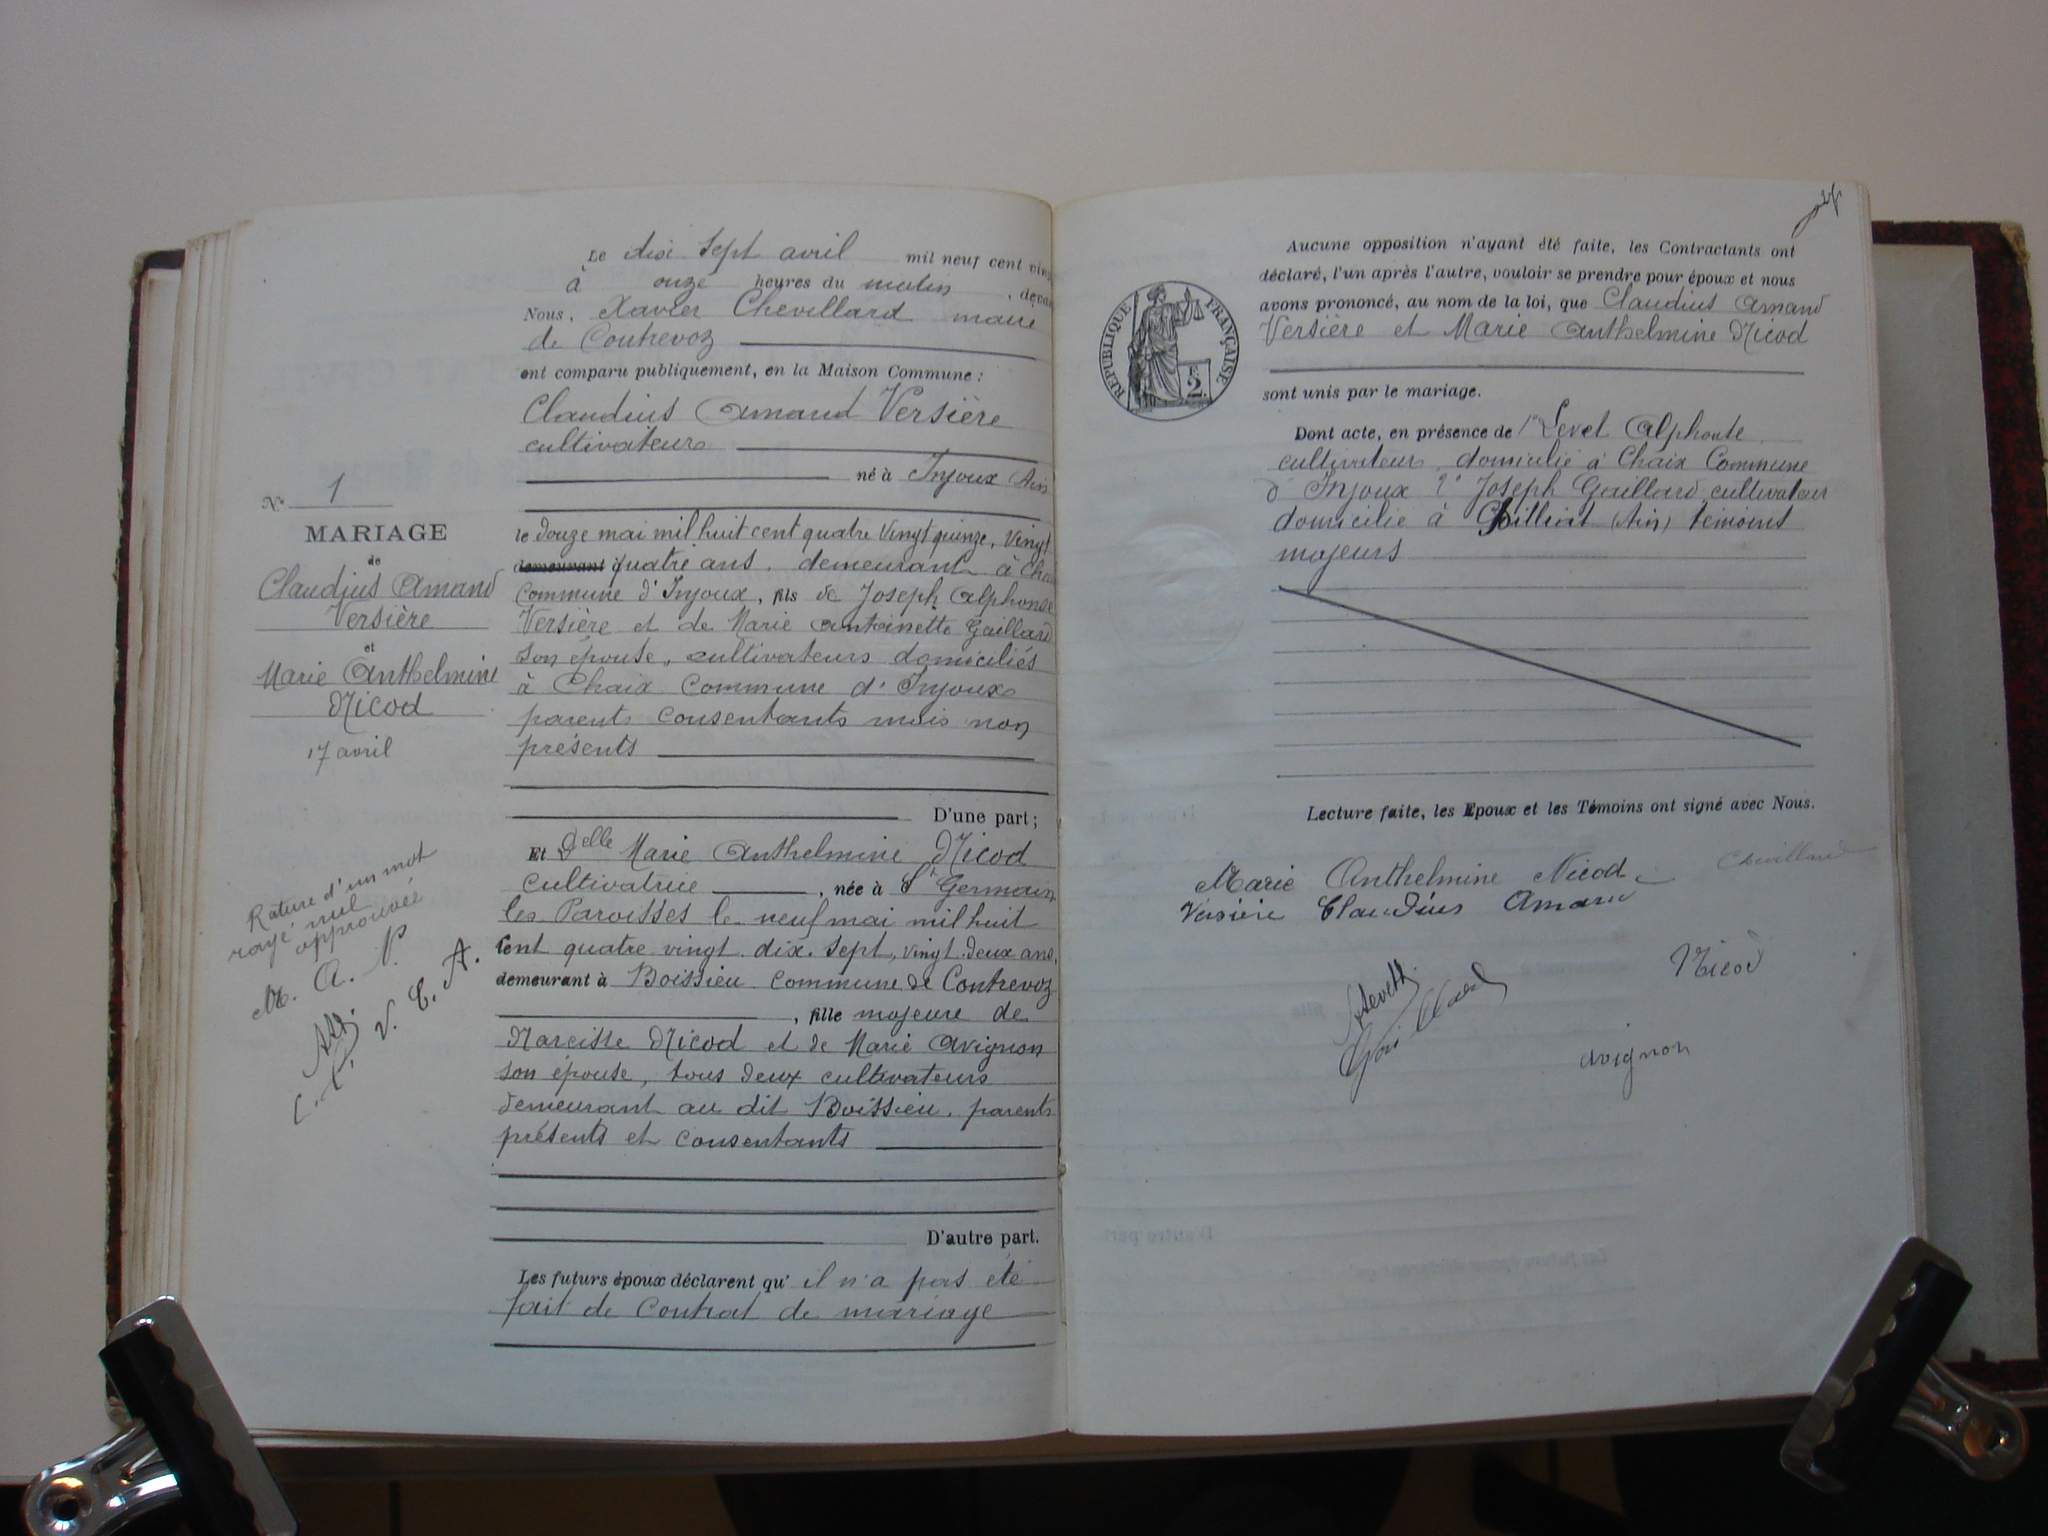 Le dix sept avril mil neuf cent vingt
à onze heures du matin, devant
Nous, Xavier Chevillard maire
de Contrevoz
ont comparu publiquement, en la Maison Commune :
Claudius Amand Versière
cultivateur
né à Injoux Ain
le douze mai mil huit cent quatre vingt quinze, vingt
demeurant quatre ans, demeurant à Chaix
Commune d'Injoux, fils de Joseph Alphonse
Versière et de Marie Antoinette Gaillard
son épouse, cultivateurs domiciliés
à Chaix Commune d'Injoux
parents consentants mais non
présents
D'une part ;
Et Delle Marie Anthelmine Nicod
Cultivatrice, née à St Germain
les Paroisses le neuf mai mil huit
cent quatre vingt dix sept, vingt deux ans,
demeurant à Boissieu Commune de Contrevoz
, fille majeure de
Narcisse Nicod et de Marie Avignon
son épouse, tous deux cultivateurs
demeurant au dit Boissieu, parents
présents et consentants
D'autre part.
Les futurs époux déclarent qu'il n'a pas été
fait de contrat de mariage
N° 1
MARIAGE
de
Claudius Amand
Versière
et
Marie Anthelmine
Nicod
17 avril
Rature d'un mot
rayé nul
approuvée
M. A. N.
V. C. A.
Aucune opposition n'ayant été faite, les Contractants ont
déclaré, l'un après l'autre, vouloir se prendre pour époux et nous
avons prononcé, au nom de la loi, que Claudius Amand
Versière et Marie Anthelmine Nicod
sont unis par le mariage.
RÉPUBLIQUE FRANÇAISE
F.
2
Dont acte, en présence de 1° Levet Alphonse
cultivateur domicilié à Chaix Commune
d'Injoux 2° Joseph Gaillard cultivateur
domicilié à (Ain) témoins
majeurs
Lecture faite, les Epoux et les Témoins ont signé avec Nous.
Marie Anthelmine Nicod
Chevillard
Versière Claudius Amand
Nicod
Gaillard
Avignon